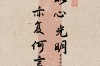 此心光明
亦复何言